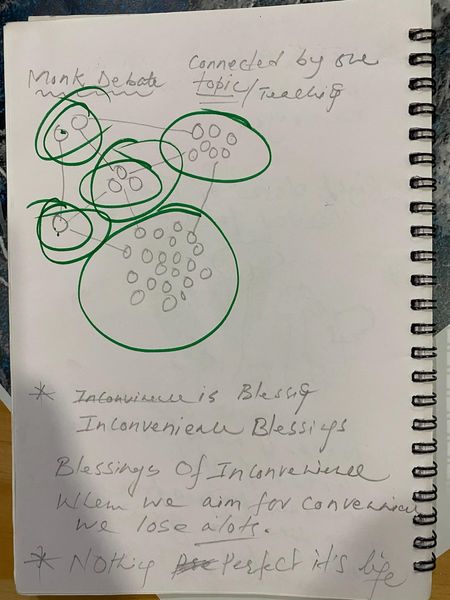 Monk Debate
Connected by one
topic/Teaching
* Inconvinence is Blessing
Inconvenience Blessings
Blessings Of Inconvenience
When we aim for convenience
we lose alots.
* Nothing Perfect it's life